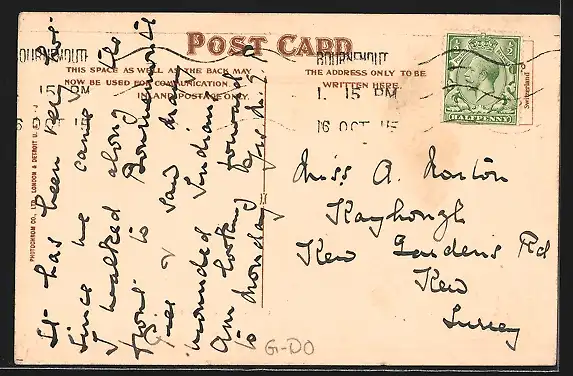 POST CARD
THIS SPACE AS WELL AS THE BACK MAY
NOW BE USED FOR COMMUNICATION
INLAND POSTAGE ONLY.
THE ADDRESS ONLY TO BE
WRITTEN HERE.
BOURNEMOUTH
1. 15 PM
16 OCT 15
BOURNEMOUTH
15 PM
HALFPENNY
Switzerland
PHOTOCHROM CO., LTD. LONDON & DETROIT U.S.A.
It has been very fine
since we came
I walked along the
front to Bournemouth
Pier & saw many
wounded Indians
am looking forward
to Monday
Miss A. Norton
Kayhough
Kew Gardens Rd
Kew
Surrey
G-DO